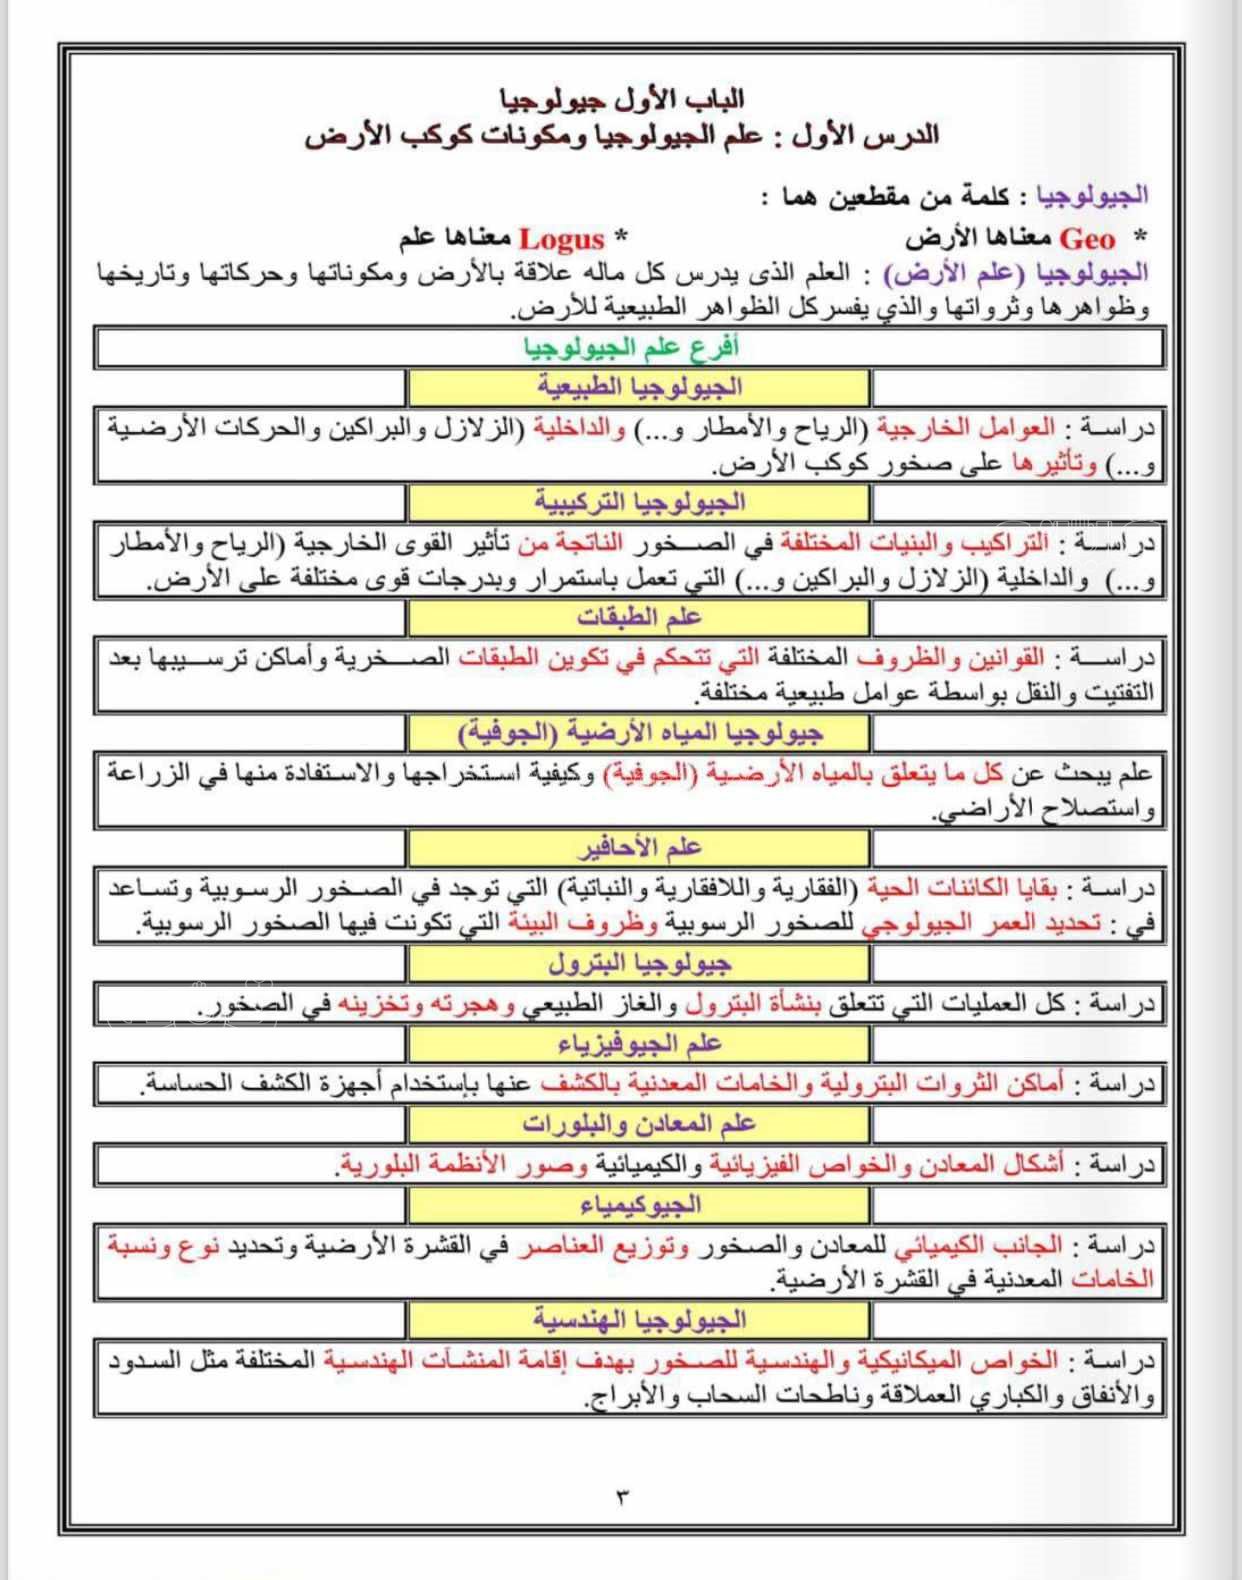 الباب الأول جيولوجيا
الدرس الأول : علم الجيولوجيا ومكونات كوكب الأرض
الجيولوجيا : كلمة من مقطعين هما :
* Geo معناها الأرض * Logus معناها علم
الجيولوجيا (علم الأرض) : العلم الذى يدرس كل ماله علاقة بالأرض ومكوناتها وحركاتها وتاريخها
وظواهرها وثرواتها والذي يفسركل الظواهر الطبيعية للأرض.
أفرع علم الجيولوجيا
الجيولوجيا الطبيعية
دراسة : العوامل الخارجية (الرياح والأمطار و...) والداخلية (الزلازل والبراكين والحركات الأرضية
و...) وتأثيرها على صخور كوكب الأرض.
الجيولوجيا التركيبية
دراسة : التراكيب والبنيات المختلفة في الصخور الناتجة من تأثير القوى الخارجية (الرياح والأمطار
و...) والداخلية (الزلازل والبراكين و...) التي تعمل باستمرار وبدرجات قوى مختلفة على الأرض.
علم الطبقات
دراسة : القوانين والظروف المختلفة التي تتحكم في تكوين الطبقات الصخرية وأماكن ترسيبها بعد
التفتيت والنقل بواسطة عوامل طبيعية مختلفة.
جيولوجيا المياه الأرضية (الجوفية)
علم يبحث عن كل ما يتعلق بالمياه الأرضية (الجوفية) وكيفية استخراجها والاستفادة منها في الزراعة
واستصلاح الأراضي.
علم الأحافير
دراسة : بقايا الكائنات الحية (الفقارية واللافقارية والنباتية) التي توجد في الصخور الرسوبية وتساعد
في : تحديد العمر الجيولوجي للصخور الرسوبية وظروف البيئة التي تكونت فيها الصخور الرسوبية.
جيولوجيا البترول
دراسة : كل العمليات التي تتعلق بنشأة البترول والغاز الطبيعي وهجرته وتخزينه في الصخور.
علم الجيوفيزياء
دراسة : أماكن الثروات البترولية والخامات المعدنية بالكشف عنها بإستخدام أجهزة الكشف الحساسة.
علم المعادن والبلورات
دراسة : أشكال المعادن والخواص الفيزيائية والكيميائية وصور الأنظمة البلورية.
الجيوكيمياء
دراسة : الجانب الكيميائي للمعادن والصخور وتوزيع العناصر في القشرة الأرضية وتحديد نوع ونسبة
الخامات المعدنية في القشرة الأرضية.
الجيولوجيا الهندسية
دراسة : الخواص الميكانيكية والهندسية للصخور بهدف إقامة المنشآت الهندسية المختلفة مثل السدود
والأنفاق والكباري العملاقة وناطحات السحاب والأبراج.
٣